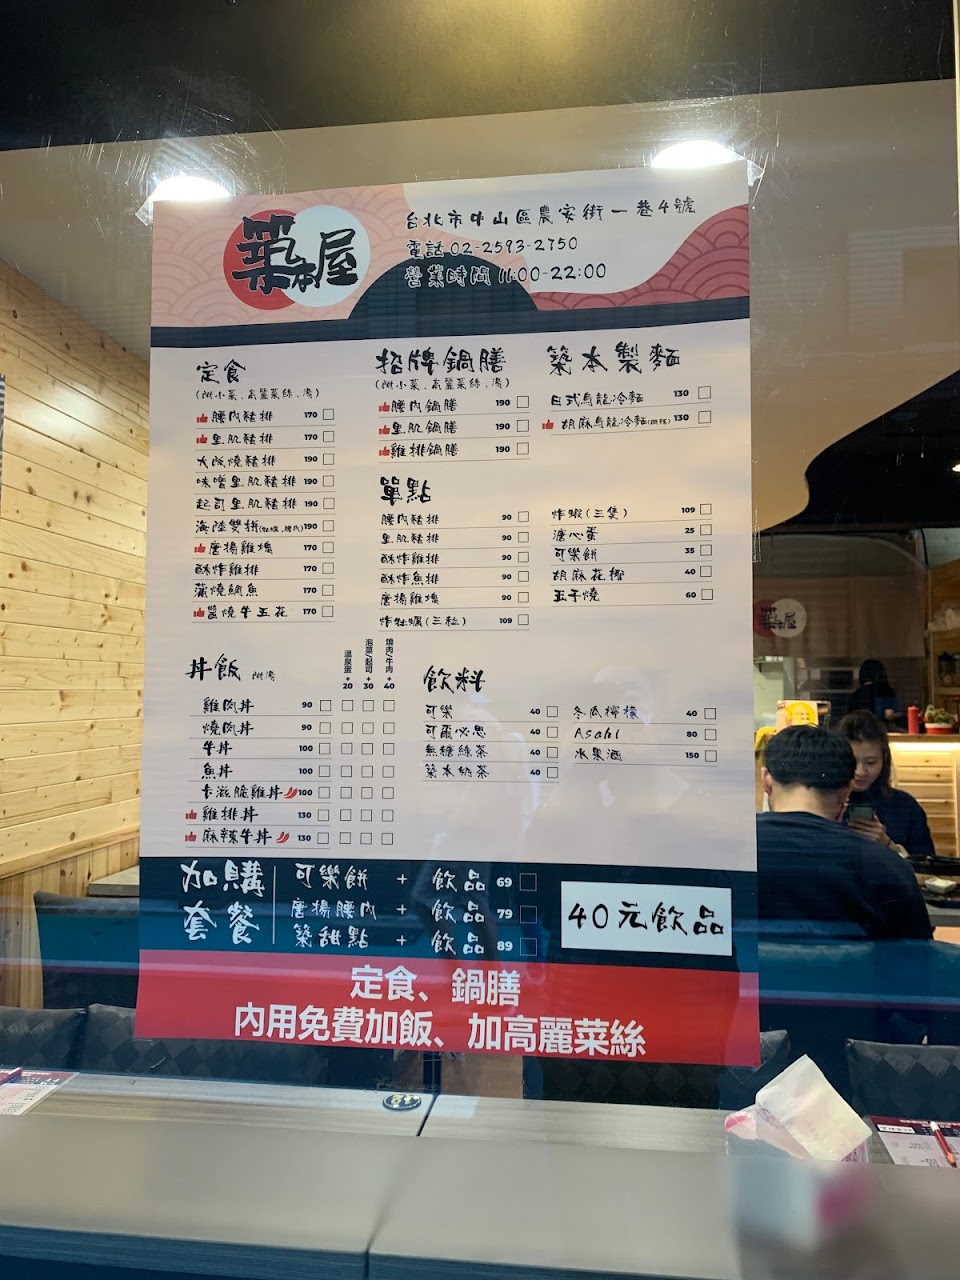 築本屋
台北市中山區農安街一巷4號
電話 02-2593-2750
營業時間 11:00-22:00
定食
(附小菜、高麗菜絲、湯)
腰內豬排 170
里肌豬排 170
大阪燒豬排 190
味噌里肌豬排 190
起司里肌豬排 190
海陸雙拼(牡蠣、腰內) 190
唐揚雞塊 170
酥炸雞排 170
蒲燒鯛魚 170
醬燒牛五花 170
招牌鍋膳
(附小菜、高麗菜絲、湯)
腰內鍋膳 190
里肌鍋膳 190
雞排鍋膳 190
築本製麵
日式烏龍冷麵 130
胡麻烏龍冷麵 130
單點
腰內豬排 90
里肌豬排 90
酥炸雞排 90
酥炸魚排 90
唐揚雞塊 90
炸牡蠣(三粒) 109
炸蝦(三隻) 109
溏心蛋 25
可樂餅 35
胡麻花椰 40
玉子燒 60
丼飯 附湯
溫泉蛋+20
泡菜/起司+30
燒肉/牛肉+40
雞肉丼 90
燒肉丼 90
牛丼 100
魚丼 100
卡滋脆雞丼 100
雞排丼 130
麻辣牛丼 130
飲料
可樂 40
可爾必思 40
無糖綠茶 40
築本奶茶 40
冬瓜檸檬 40
Asahi 80
水果酒 150
加購套餐
可樂餅 + 飲品 69
唐揚腰內 + 飲品 79
築甜點 + 飲品 89
40元飲品
定食、鍋膳
內用免費加飯、加高麗菜絲